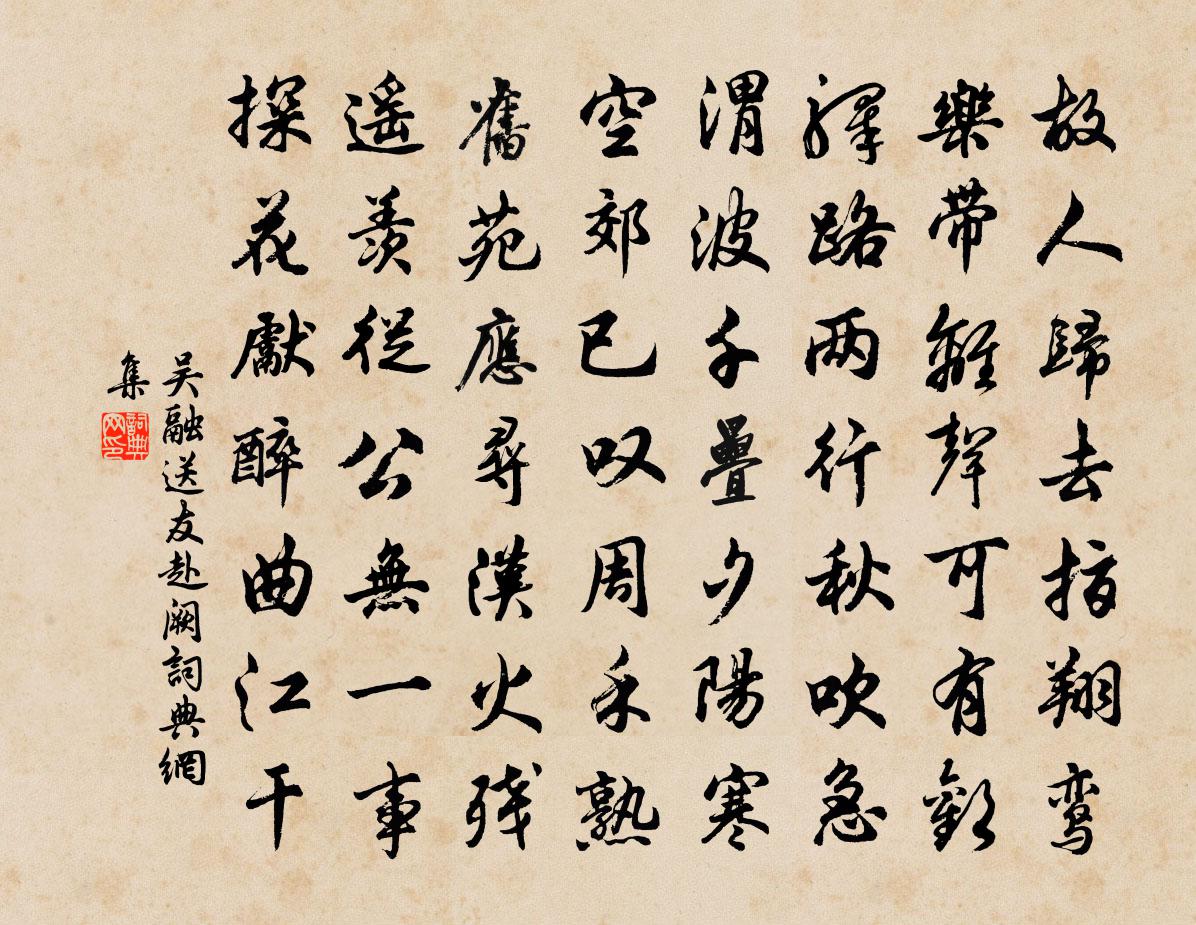 故人歸去指翔鸾
樂带離聲可有歡
驛路两行秋吹急
渭波千疊夕陽寒
空郊已叹周禾熟
舊苑應尋漢火残
遥羨從公無一事
探花獻醉曲江干
吴融送友赴阙詞典網
集
詞典网印